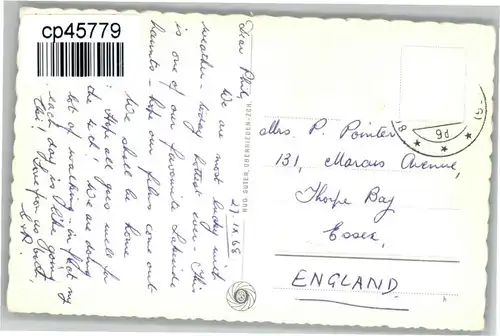 cp45779
27.IX.68
Dear Phil,
We are most lucky with
weather - today hottest ever. This
is one of our favourite Lakeside
haunts - hope our films come out.
We shall be home
Hope all goes well for
the sick! We are doing
lot of walking, in fact my
each day is like going
this! Love from us both,
HUG. SUTER, OBERRIEDEN-ZCH.
Mrs. P. Pointer
131, Marcus Avenue,
Thorpe Bay
Essex,
ENGLAND.